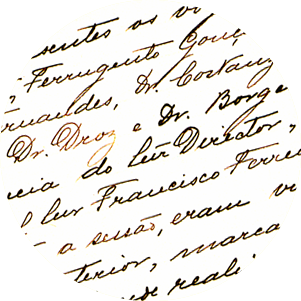 sentes os vo
Ferrugento Gonç
rnandes, Dr. Costanz
Dr. Droz e Dr. Borge
ncia do Snr Director,
O Snr Francisco Ferre
a sessão, eram vi
terior, marca
de reali